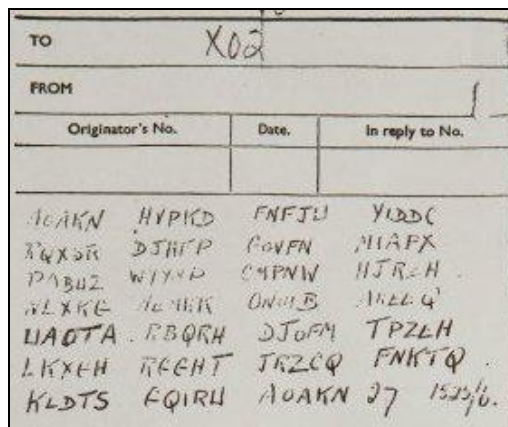 TO X02
FROM
Originator's No. Date. In reply to No.
AOAKN HVPKD FNFJW YIDDC
RQXSR DJHFP GOVFN MIAPX
PABUZ WYYNP CMPNW HJRZH
NLXKG MEMKK ONOIB AKEEQ
WAOTA RBQRH DJOFM TPZEH
LKXGH RGGHT JRZCQ FNKTQ
KLDTS FQIRW AOAKN 27 1525/6.